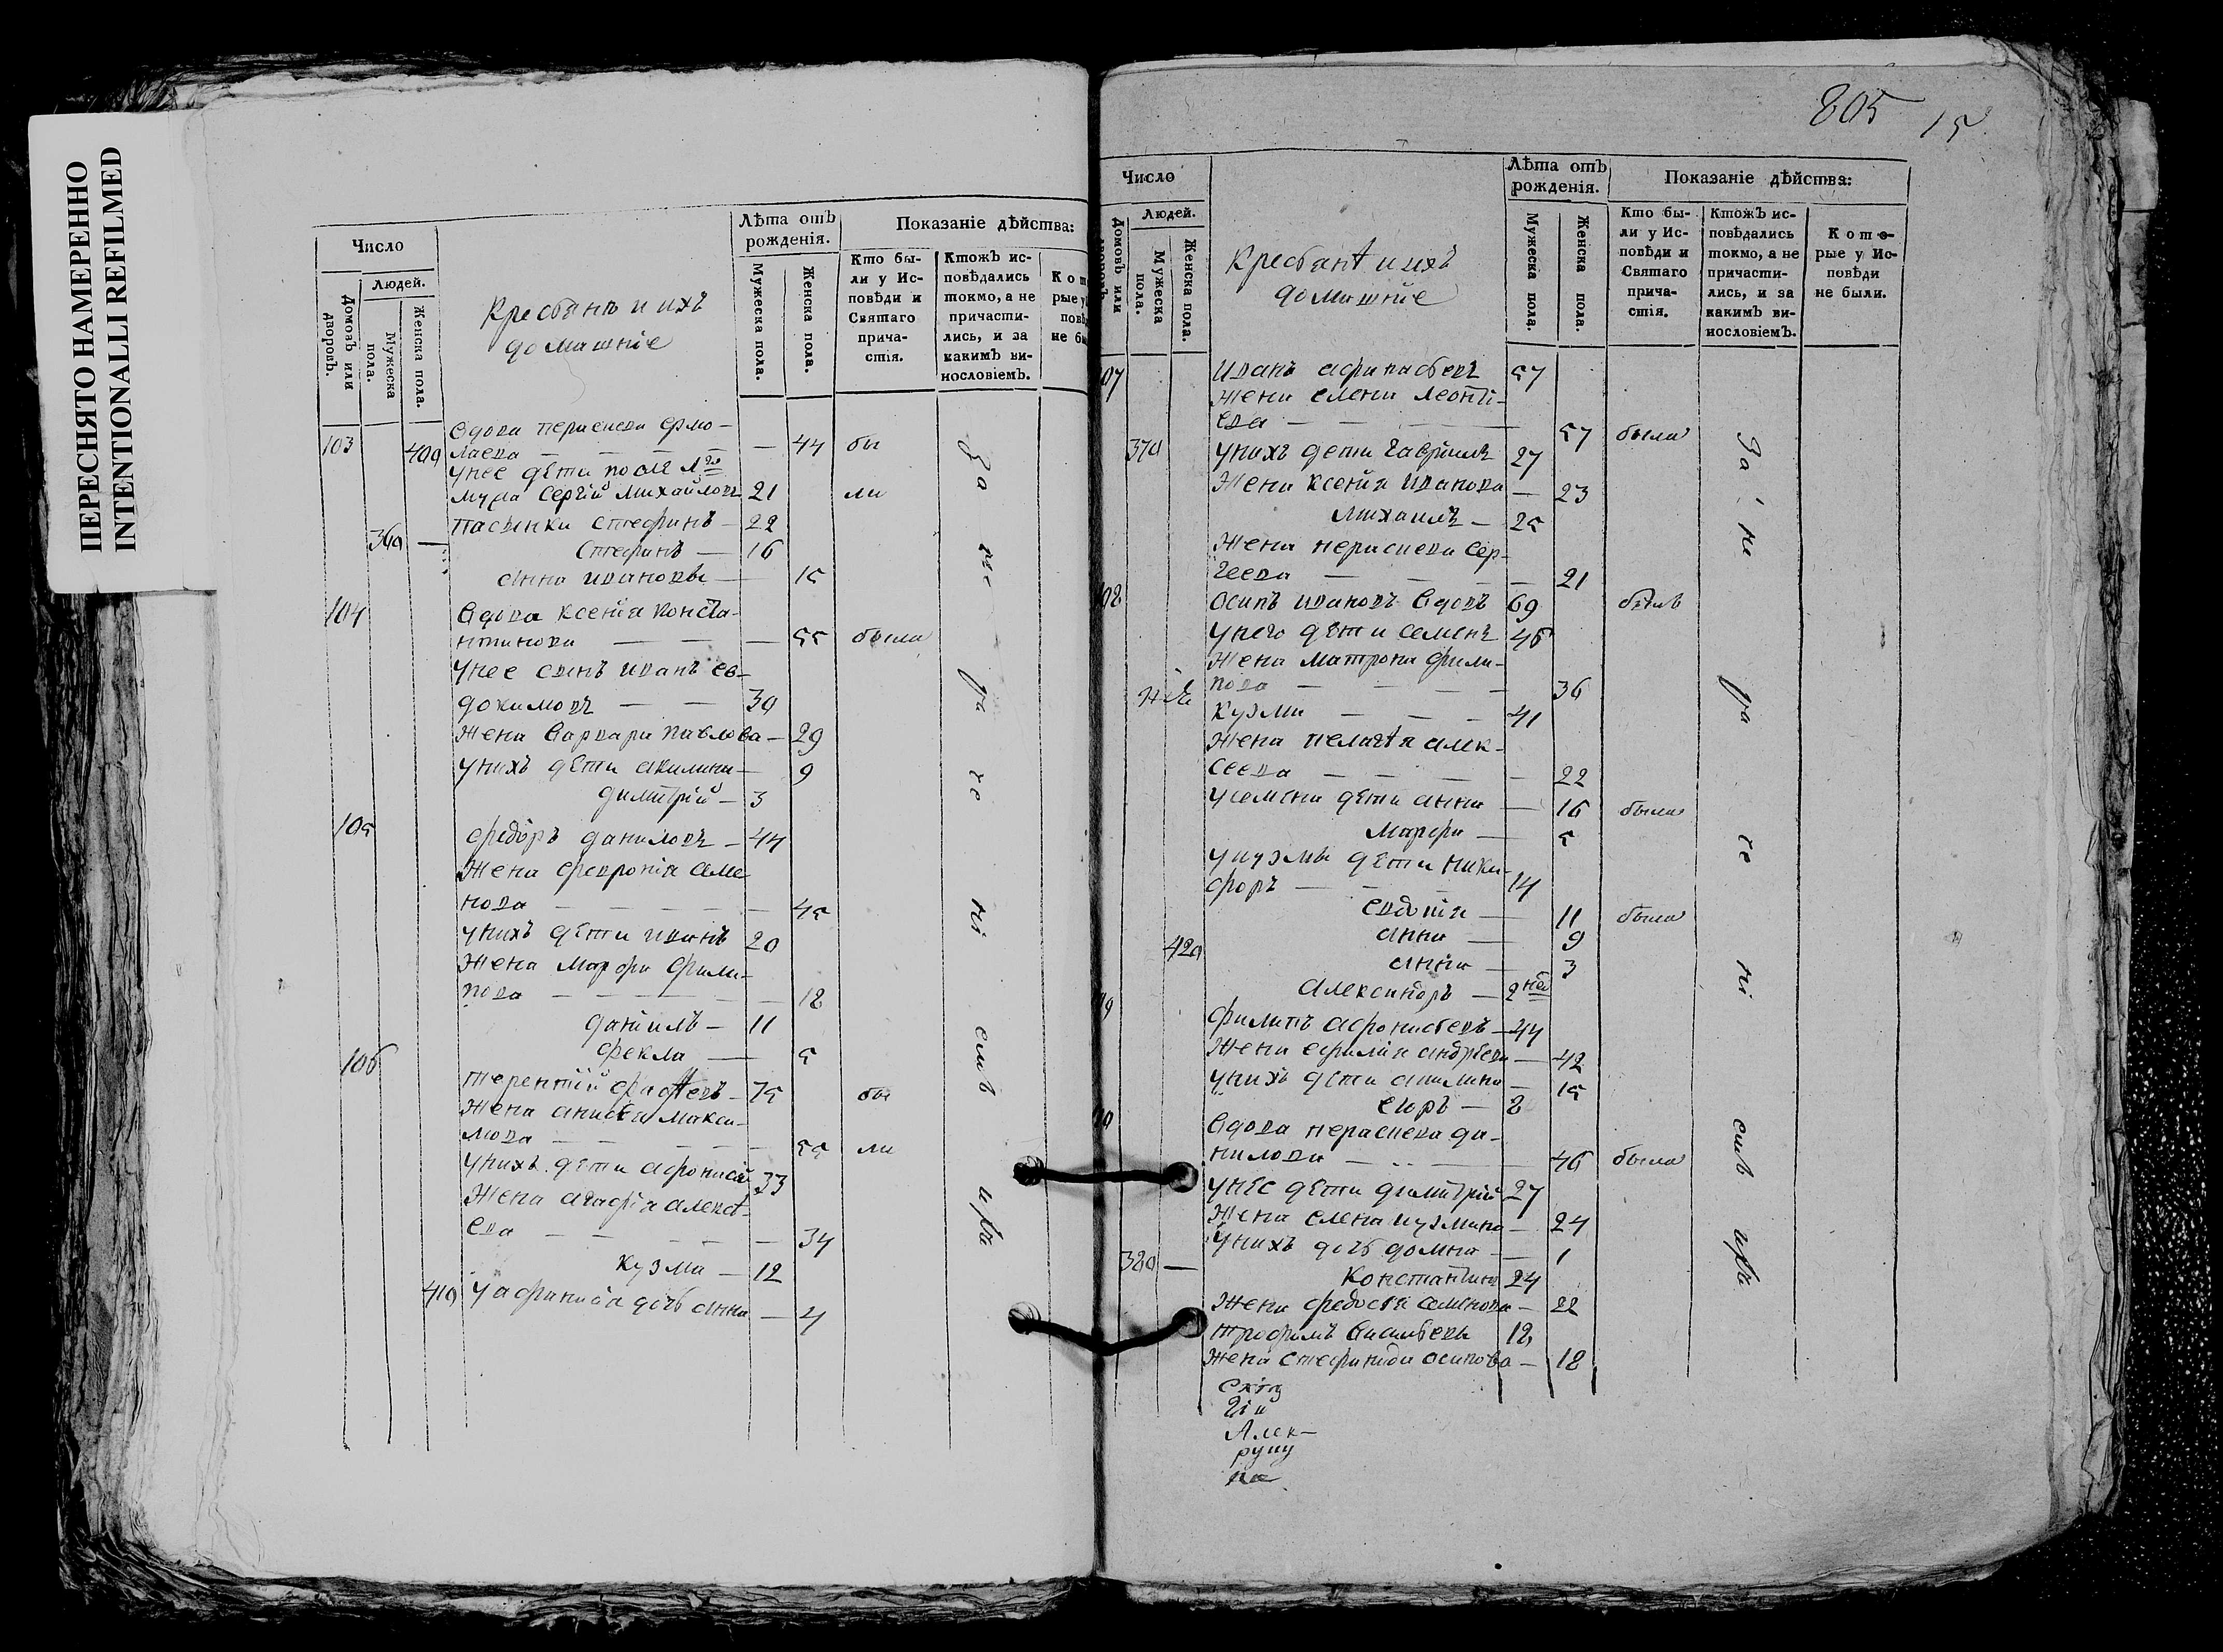 ПЕРЕСНЯТО НАМЕРЕННО
INTENTIONALLI REFILMED
Число
Людей.
Домовъ или дворовъ.
Мужеска пола.
Женска пола.
Крестьянѣ и ихъ
домашніе
Лѣта отъ
рожденія.
Мужеска пола.
Женска пола.
Показаніе дѣйства:
Кто бы-
ли у Ис-
повѣди и
Святаго
прича-
стія.
Ктожъ ис-
повѣдались
токмо, а не
причасти-
лись, и за
какимъ ви-
нословіемъ.
103 409 Вдова ермо-
лаева — 44 бы
у нее дѣти
мужа Сергій Михайловъ 21 ли
пасынки Стефанъ — 22
360 — Стефанъ — 16
Анна Иванова — 15
104 Вдова Ксенія Конста-
нтинова — 55 была
у нее сынъ Иванъ Ев-
докимовъ — 30
Жена Варвара Павлова — 29
у нихъ дѣти Акилина — 9
Димитрій — 3
105 Федоръ Даниловъ — 44
Жена Феврония Семе-
нова — 45
у нихъ дѣти Иванъ 20
Жена Марфа Фили-
пова — 18
Даніилъ — 11
Фекла — 5
106 Терентій — 75 бы
Жена Анисья Макси-
мова — 55 ли
у нихъ дѣти Афонасій 33
Жена Агафія Алексѣ-
ева — 34
Кузма — 12
410 У Афанасія дочь Анна — 4
За не ра че ні емъ
805
15
Число
Людей.
Домовъ или дворовъ.
Мужеска пола.
Женска пола.
Крестьянѣ и ихъ
домашніе
Лѣта отъ
рожденія.
Мужеска пола.
Женска пола.
Показаніе дѣйства:
Кто бы-
ли у Ис-
повѣди и
Святаго
прича-
стія.
Ктожъ ис-
повѣдались
токмо, а не
причасти-
лись, и за
какимъ ви-
нословіемъ.
Кото-
рые у Ис-
повѣди
не были.
07 Иванъ Афанасьевъ 57
Жена Елена Леонті-
ева — 57 была
370 у нихъ дети Гавріилъ 27
Жена Ксенія Иванова — 23
Михаилъ — 25
Жена Сер-
геева — 21
08 Осипъ Ивановъ вдовъ 69 былъ
у него дѣти Семенъ 46
Жена Матрона Фили-
пова — 36
Кузма — 41
Жена Пелагѣя Алек-
сеева — 22
у Семена дѣти Анна — 16 была
Марфа — 5
у Кузмы дѣти Ники-
форъ — 14
Евдокія — 11 была
Анна — 9
420 Анна — 3
Александръ — 2
09 Филипъ Афонасьевъ — 44
Жена Ефимія Андрѣева — 42
у нихъ дѣти Акилина — 15
Егоръ — 8
Вдова Да-
нилова — 46 была
у нее дѣти Димитрій 27
Жена Елена Кузмина — 24
у нихъ дочь Домна — 1
380 — Константинъ 24
Жена Федосья Семенова — 22
Трофимъ Васильевъ 18
Жена Стефанида Осипова — 18
За не ра че ні емъ